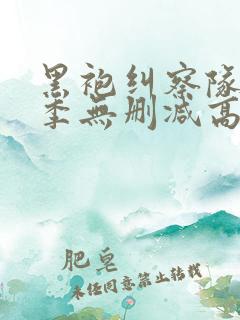 黑袍纠察队
季無删减高
肥皂
未任同意禁止转载